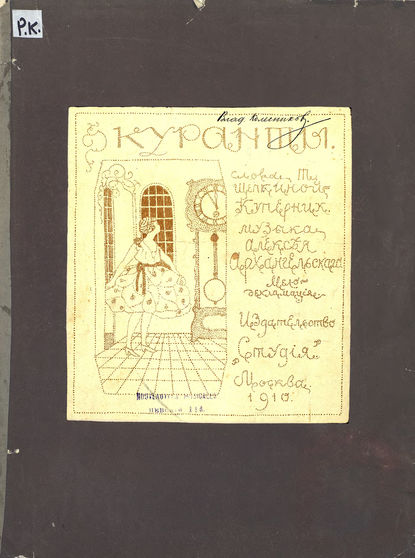 Р.К.
Влад. Колесников.
КУРАНТЫ.
Слова Т.
ЩЕПКИНОЙ
КУПЕРНИК.
МУЗЫКА
АЛЕКСѢЯ
АРХАНГЕЛЬСКАГО
Мело-
декламація
Издательство
"Студія"
Москва
1910.